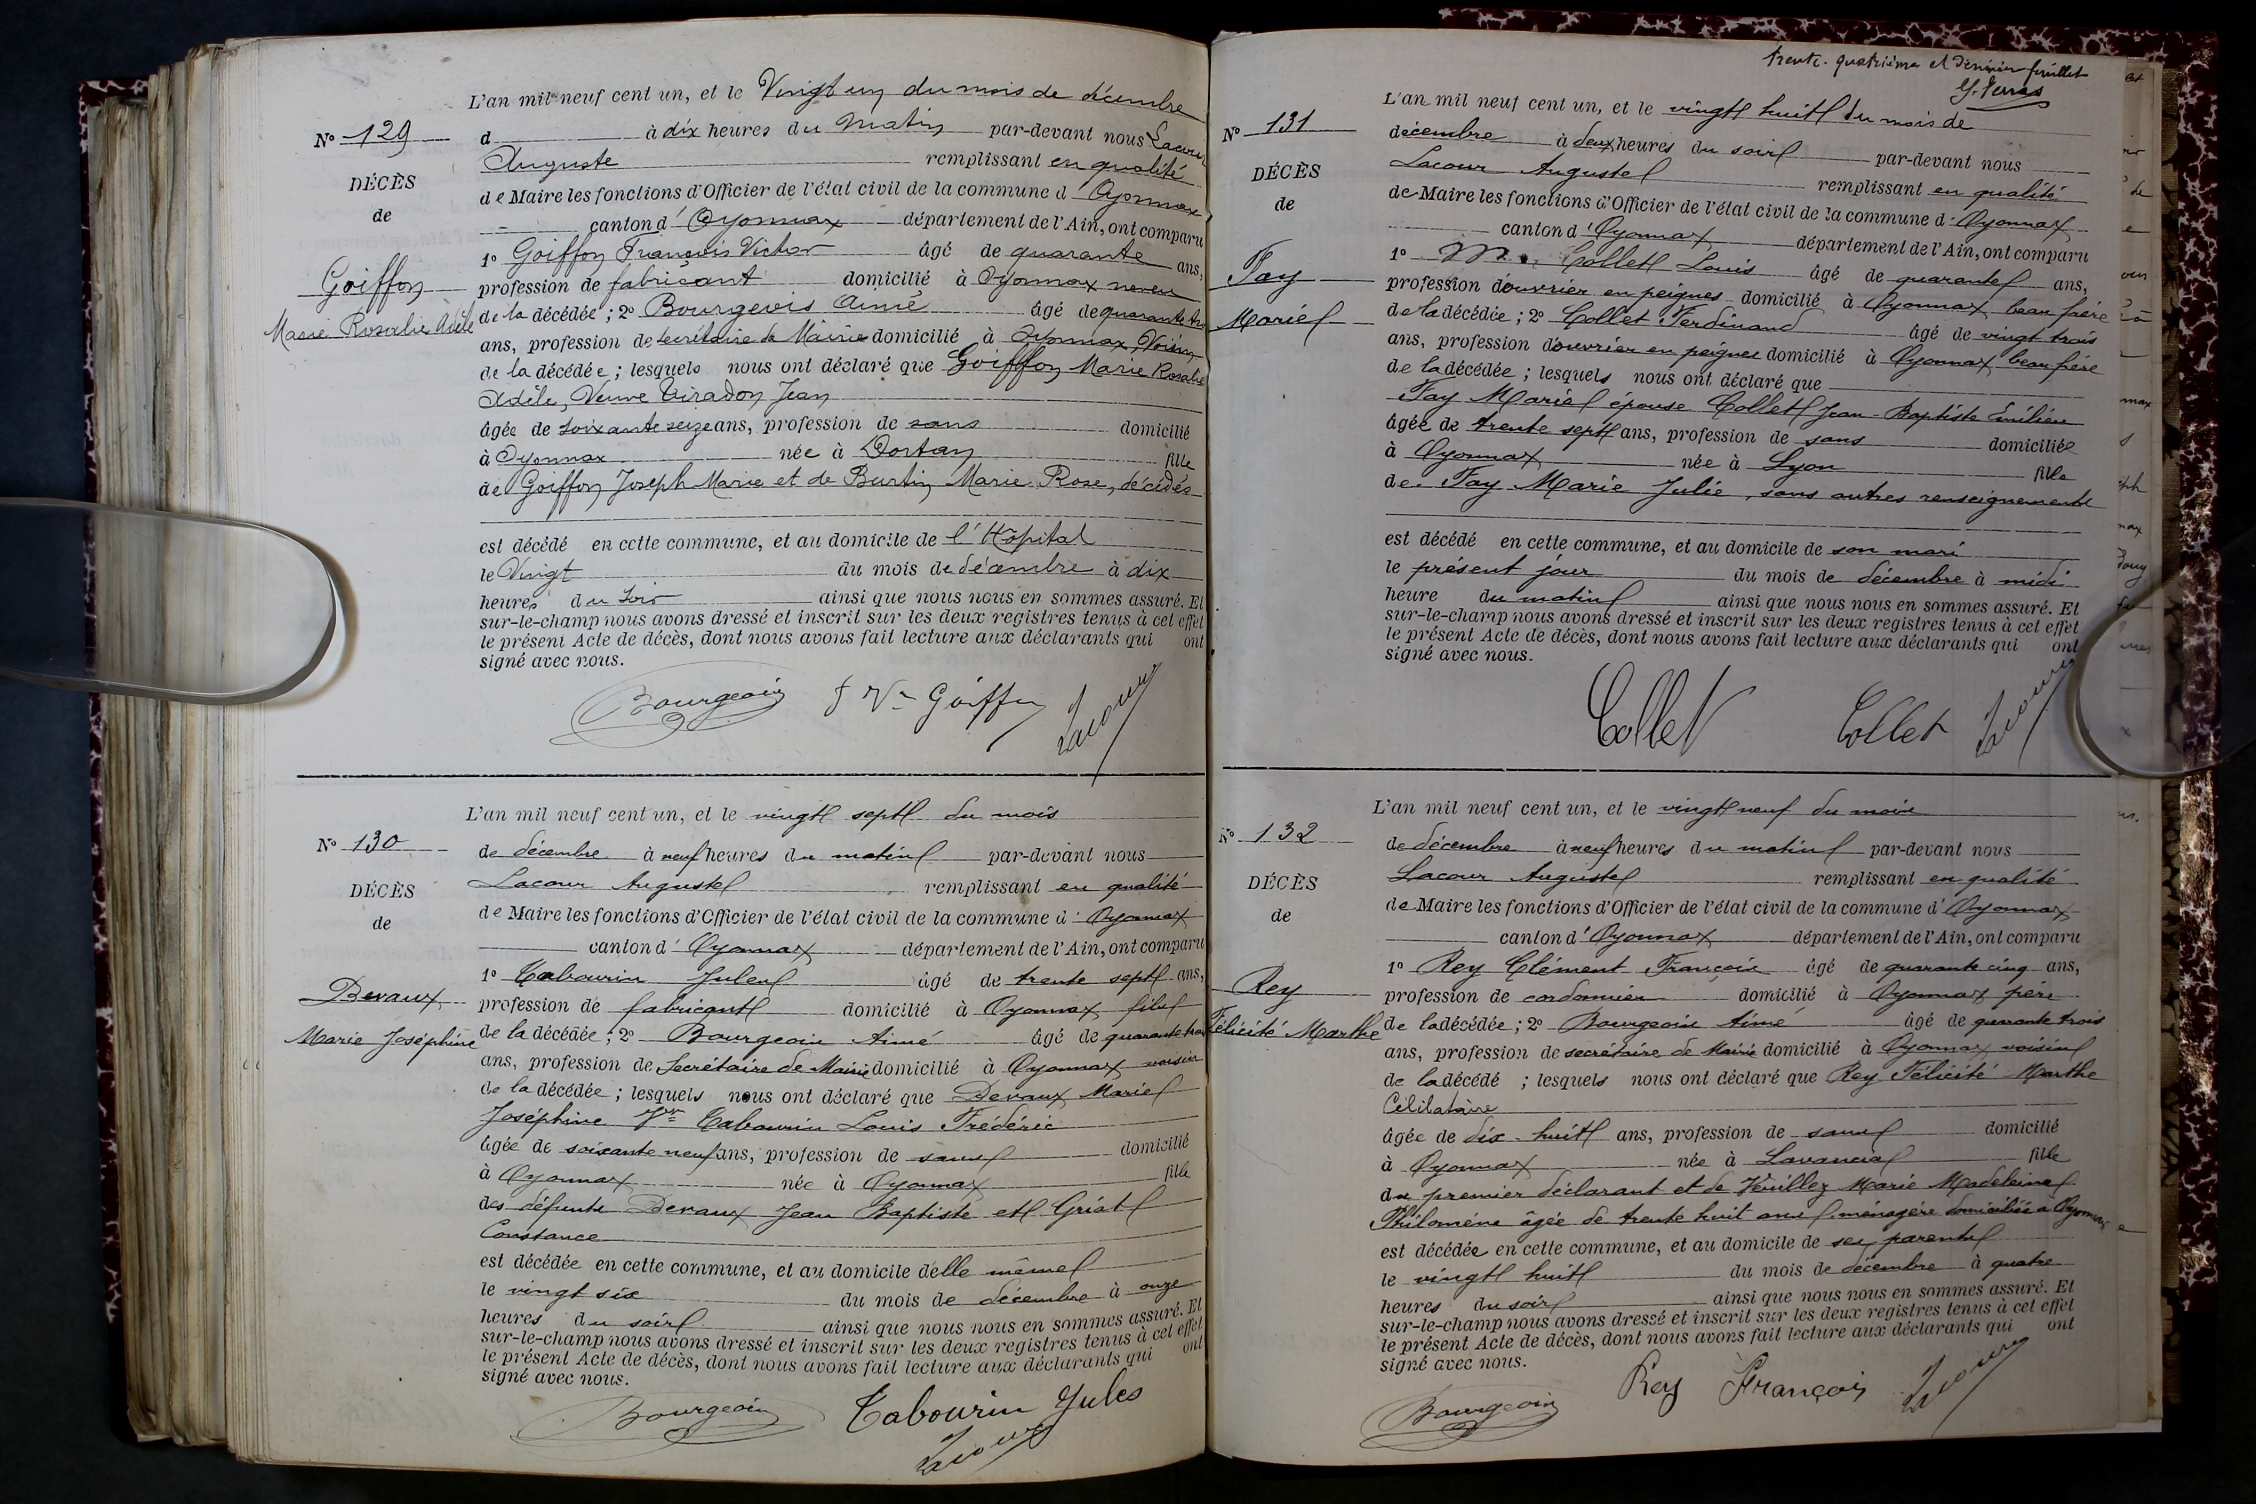 L'an mil neuf cent un, et le Vingt un du mois de décembre
N° 129
d à dix heures du matin par-devant nous Lacour
Auguste remplissant en qualité
DÉCÈS
de Maire les fonctions d'Officier de l'état civil de la commune d Oyonnax
de
canton d'Oyonnax département de l'Ain, ont comparu
1° Goiffon François Victor âgé de quarante ans,
Goiffon
profession de fabricant domicilié à Oyonnax neveu
Marie Rosalie Adèle
de la décédée ; 2° Bourgeois Aimé âgé de quarante
ans, profession de secrétaire de Mairie domicilié à Oyonnax, Voisin
de la décédée ; lesquels nous ont déclaré que Goiffon Marie Rosalie
Adèle, Veuve Tiradon Jean
âgée de soixante seize ans, profession de sans domicilié
à Oyonnax née à Dortan fille
de Goiffon Joseph Marie et de Burtin Marie Rose, décédés
est décédé en cette commune, et au domicile de l'Hôpital
le Vingt du mois de décembre à dix
heures du soir ainsi que nous nous en sommes assuré. Et
sur-le-champ nous avons dressé et inscrit sur les deux registres tenus à cet effet
le présent Acte de décès, dont nous avons fait lecture aux déclarants qui ont
signé avec nous.
Bourgeois F Vr Goiffon Lacour
L'an mil neuf cent un, et le vingt sept du mois
N° 130
de décembre à neuf heures du matin par-devant nous
Lacour Auguste remplissant en qualité
DÉCÈS
de Maire les fonctions d'Officier de l'état civil de la commune d' Oyonnax
de
canton d' Oyonnax département de l'Ain, ont comparu
1° Tabourin Jules âgé de trente sept ans,
Devaux
profession de fabricant domicilié à Oyonnax fils
Marie Joséphine
de la décédée ; 2° Bourgeois Aimé âgé de quarante trois
ans, profession de Secrétaire de Mairie domicilié à Oyonnax voisin
de la décédée ; lesquels nous ont déclaré que Devaux Marie
Joséphine Vve Tabourin Louis Frédéric
âgée de soixante neuf ans, profession de sans domicilié
à Oyonnax née à Oyonnax fille
des défunts Devaux Jean Baptiste et Griat
Constance
est décédée en cette commune, et au domicile d'elle même
le vingt six du mois de décembre à onze
heures du soir ainsi que nous nous en sommes assuré. Et
sur-le-champ nous avons dressé et inscrit sur les deux registres tenus à cet effet
le présent Acte de décès, dont nous avons fait lecture aux déclarants qui ont
signé avec nous.
Bourgeois Tabourin Jules
Lacour
trente-quatrième et dernier feuillet
L'an mil neuf cent un, et le vingt huit du mois de
N° 131
décembre à deux heures du soir par-devant nous
Lacour Auguste remplissant en qualité
DÉCÈS
de Maire les fonctions d'Officier de l'état civil de la commune d'Oyonnax
de
canton d'Oyonnax département de l'Ain, ont comparu
1° M. Collet Louis âgé de quarante ans,
Fay
profession d'ouvrier en peignes domicilié à Oyonnax, beau frère
Marie
de la décédée ; 2° Collet Ferdinand âgé de vingt trois
ans, profession d'ouvrier en peignes domicilié à Oyonnax, beau frère
de la décédée ; lesquels nous ont déclaré que
Fay Marie épouse Collet Jean-Baptiste Emilien
âgée de trente sept ans, profession de sans domiciliée
à Oyonnax née à Lyon fille
de Fay Marie Julie, sans autres renseignements
est décédé en cette commune, et au domicile de son mari
le présent jour du mois de décembre à midi
heure du matin ainsi que nous nous en sommes assuré. Et
sur-le-champ nous avons dressé et inscrit sur les deux registres tenus à cet effet
le présent Acte de décès, dont nous avons fait lecture aux déclarants qui ont
signé avec nous.
Collet Collet Lacour
L'an mil neuf cent un, et le vingt neuf du mois
N° 132
de décembre à neuf heures du matin par-devant nous
Lacour Auguste remplissant en qualité
DÉCÈS
de Maire les fonctions d'Officier de l'état civil de la commune d'Oyonnax
de
canton d'Oyonnax département de l'Ain, ont comparu
1° Rey Clément François âgé de quarante cinq ans,
Rey
profession de cordonnier domicilié à Oyonnax père
Félicité Marthe
de la décédée ; 2° Bourgeois Aimé âgé de quarante trois
ans, profession de secrétaire de Mairie domicilié à Oyonnax voisin
de la décédé ; lesquels nous ont déclaré que Rey Félicité Marthe
Célibataire
âgée de dix-huit ans, profession de sans domicilié
à Oyonnax née à Lavancia fille
du premier déclarant et de Vuillez Marie Madeleine
Philomène âgée de trente huit ans ménagère domiciliée à Oyonnax
est décédée en cette commune, et au domicile de ses parents
le vingt huit du mois de décembre à quatre
heures du soir ainsi que nous nous en sommes assuré. Et
sur-le-champ nous avons dressé et inscrit sur les deux registres tenus à cet effet
le présent Acte de décès, dont nous avons fait lecture aux déclarants qui ont
signé avec nous.
Bourgeois Rey François Lacour